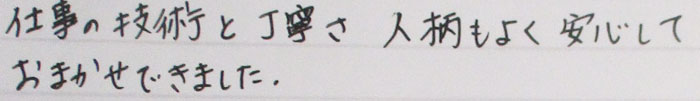 仕事の技術と丁寧さ 人柄もよく 安心して
おまかせできました.